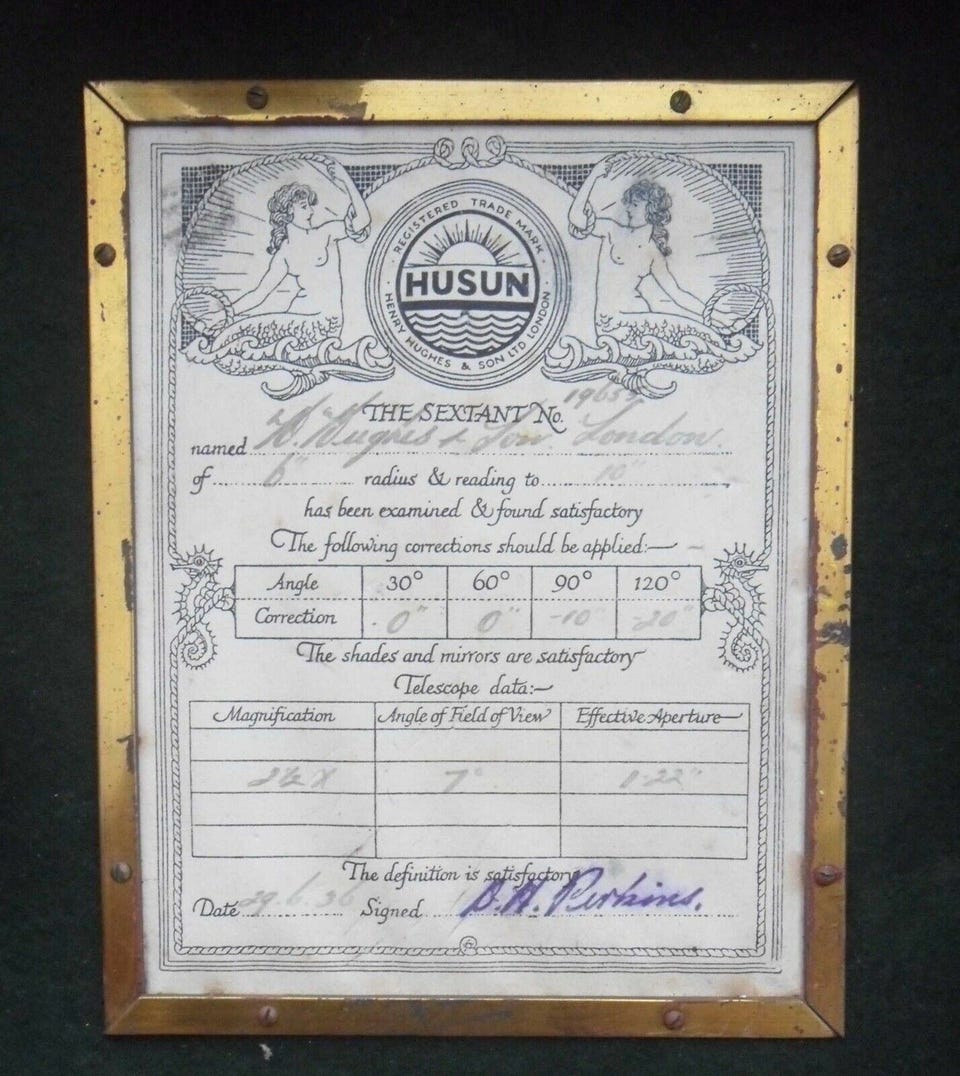 REGISTERED TRADE MARK
HUSUN
HENRY HUGHES & SON LTD LONDON
THE SEXTANT No.
named H. Hughes & Son London.
of 6" radius & reading to 10"
has been examined & found satisfactory
The following corrections should be applied:—
Angle 30° 60° 90° 120°
Correction 0" 0" -10" -20"
The shades and mirrors are satisfactory
Telescope data:—
Magnification Angle of Field of View Effective Aperture
2½ X 7° 1.22"
The definition is satisfactory
Date 29.6.36 Signed D. H. Perkins.